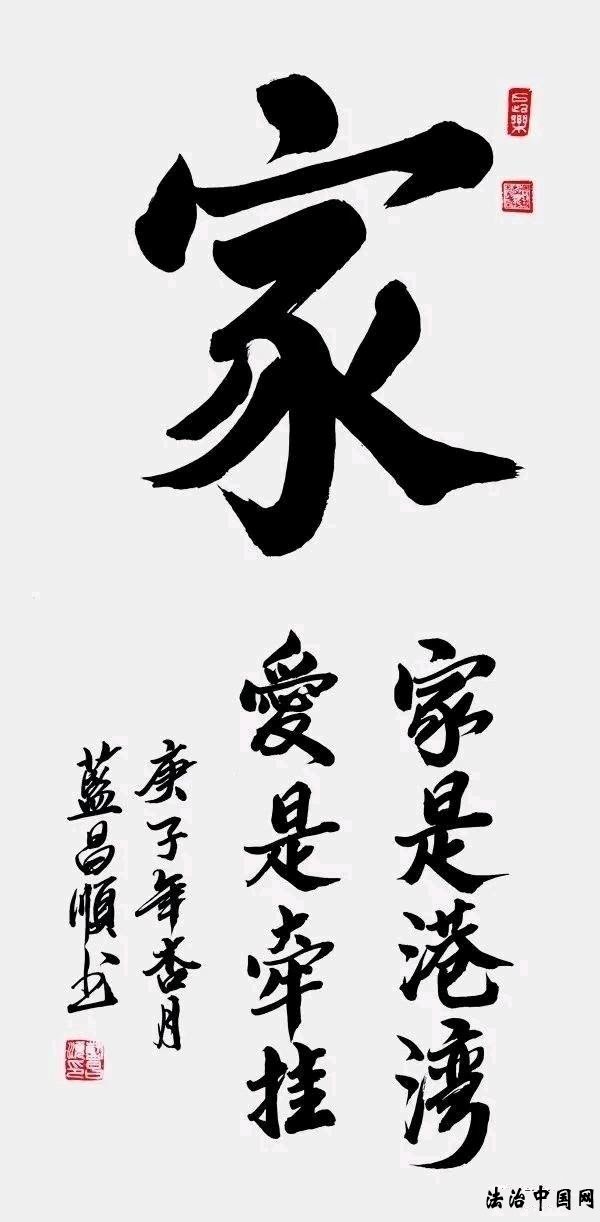 家
家是港湾
愛是牽挂
庚子年杏月
藍昌順书
法治中国网